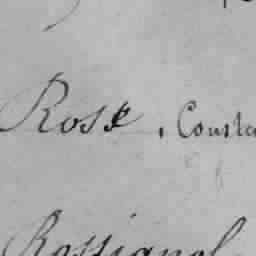 Rose, Consta
Rossignol